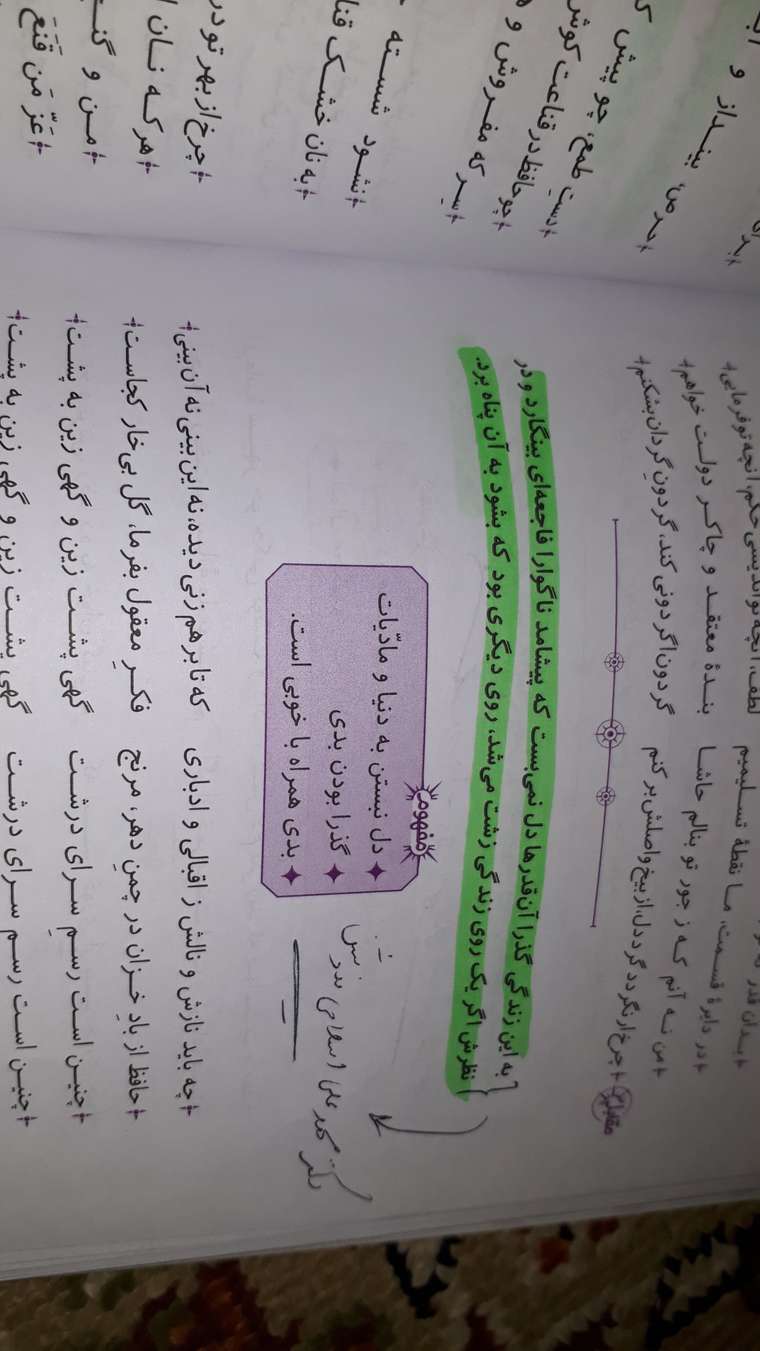 در دایرهٔ قسمت، ما نقطهٔ تسلیمیم لطف، آنچه تو اندیشی حکم، آنچه تو فرمایی
من نه آنم که ز جور تو بنالم حاشا بندهٔ معتقد و چاکر دولت خواهم
چرخ ار نگردد گرد دل، از بیخ و اصلش برکنم گردون اگر دونی کند، گردونِ گردان بشکنم
به این زندگی گذرا آن‌قدرها دل نمی‌بست که پیشامد ناگوارا فاجعه‌ای بینگارد و در
نظرش اگر یک روی زندگی زشت می‌شد، روی دیگری بود که بشود به آن پناه برد.
مفهوم
دل نبستن به دنیا و مادّیات
گذرا بودن بدی
بدی همراه با خوبی است.
دکتر محمد علی اسلامی ندوشن
چه باید نازش و نالش ز اقبالی و ادباری که تا بر هم زنی دیده، نه این بینی نه آن بینی
حافظ از بادِ خزان در چمنِ دهر، مرنج فکرِ معقول بفرما، گل بی‌خار کجاست
چنین است رسمِ سرای درشت گهی پشت زین و گهی زین به پشت
چنین است رسم سرای درشت گهی پشت زین و گهی زین به پشت
بینداز و
حرص،
دستِ طمع، چو پیش
چو حافظ در قناعت کوش
که مفروش و
نشود شسته
به نان خشک
چرخ از بهر تو در
هر که نان
من و
عَزَّ مَن قَنَعَ